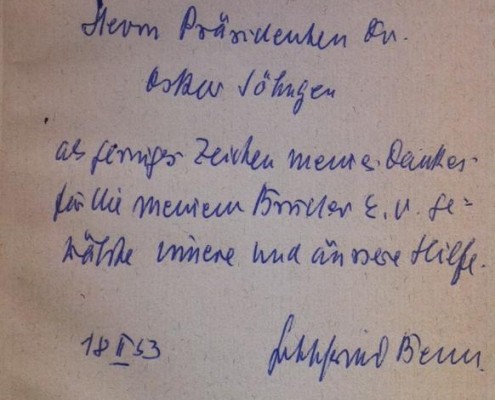 Herrn Präsidenten Dr.
Oskar Söhngen
als geringes Zeichen meines Dankes
für die meinem Bruder E. V. ge=
währte innere und äussere Hilfe.
18 II 53
Gottfried Benn.